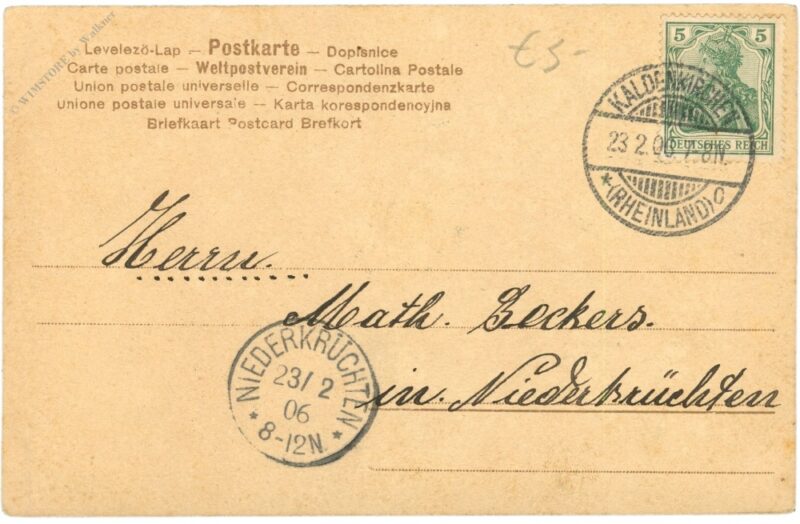 © WIMSTORE by Walkner
Levelező-Lap — Postkarte — Dopisnice
Carte postale — Weltpostverein — Cartolina Postale
Union postale universelle — Correspondenzkarte
Unione postale universale — Karta korespondencyjna
Briefkaart Postcard Brefkort
€5-
5 5
DEUTSCHES REICH
KALDENKIRCHEN
23 2.06. 7-8N.
* (RHEINLAND) c
Herrn.
Math. Beckers.
in. Niederkrüchten
NIEDERKRÜCHTEN
23/ 2
06
* 8-12N. *